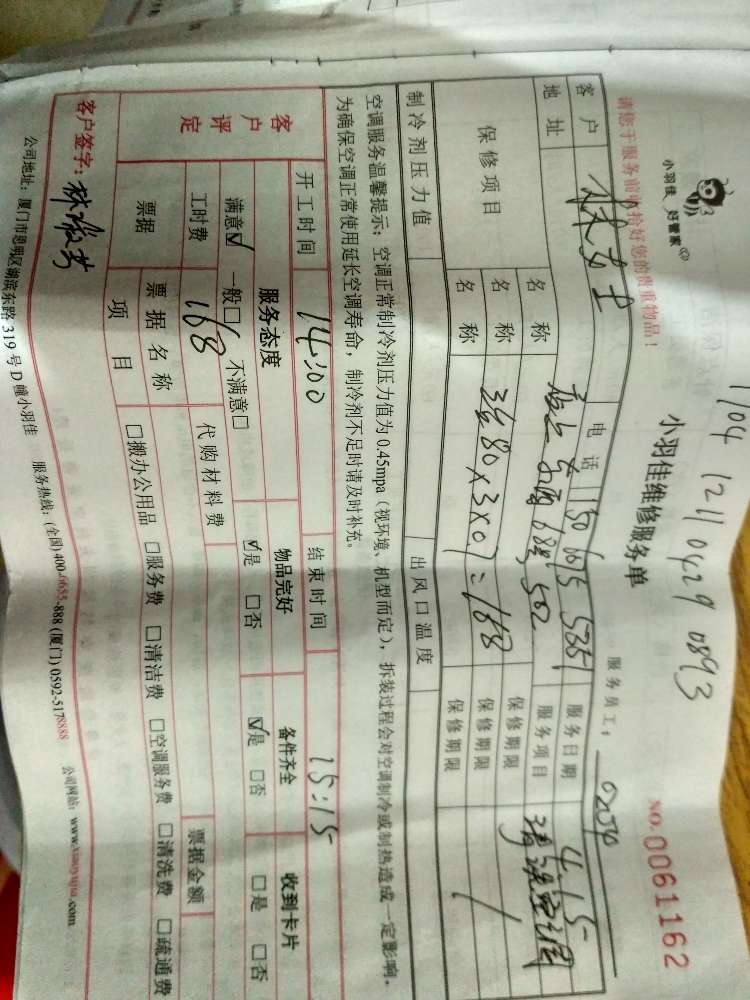 1704 1211 0429 0893
小羽佳 好管家
小羽佳维修服务单
NO.0061162
请您于服务前收拾好您的贵重物品！
服务员工：0250
客户 林女士 电话 150 6015 5285 服务日期 4.15
地址 68号502 服务项目 清洗空调
保修项目 名称 3台80×3×0.7=168 保修期限
名称 保修期限
名称 保修期限
制冷剂压力值 出风口温度
空调服务温馨提示：空调正常制冷剂压力值为0.45mpa（视环境、机型而定），拆装过程会对空调制冷或制热造成一定影响，
为确保空调正常使用延长空调寿命，制冷剂不足时请及时补充。
客户评定 开工时间 14:00 结束时间 15:15
服务态度 物品完好 备件齐全 收到卡片
满意☑ 一般□ 不满意□ ☑是 □否 ☑是 □否 □是 □否
工时费 168 代购材料费 票据金额
票据 票据名称
项目 □搬办公用品 □服务费 □清洁费 □空调服务费 □清洗费 □疏通费
客户签字：林
公司地址：厦门市思明区湖滨东路319号D幢小羽佳 服务热线：(全国)400-6655-888 (厦门)0592-5178888 公司网站：www.xiaoyujia.com